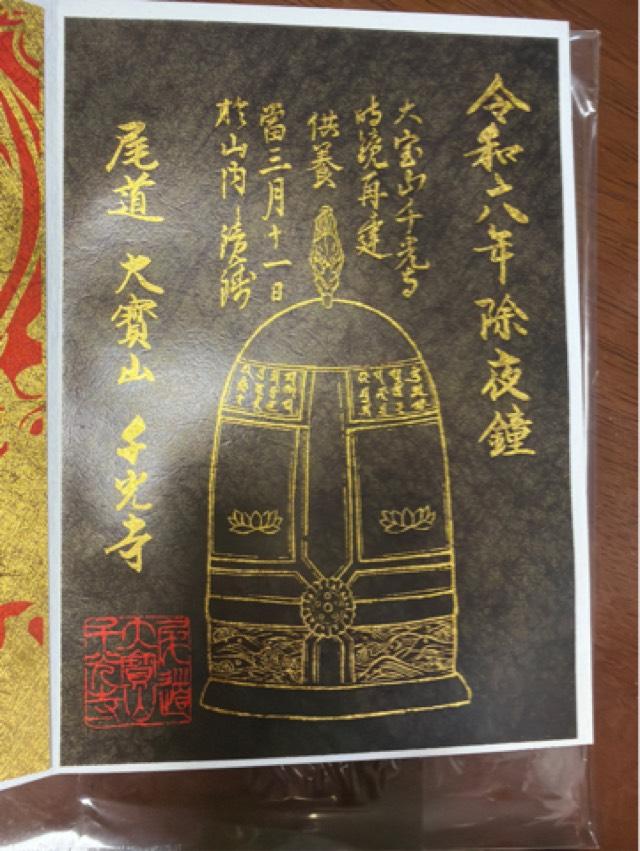 令和六年除夜鐘
大宝山千光寺
時鏡再建
供養
當三月十一日
於山内
尾道 大寶山 千光寺
尾道
大寶山
千光寺